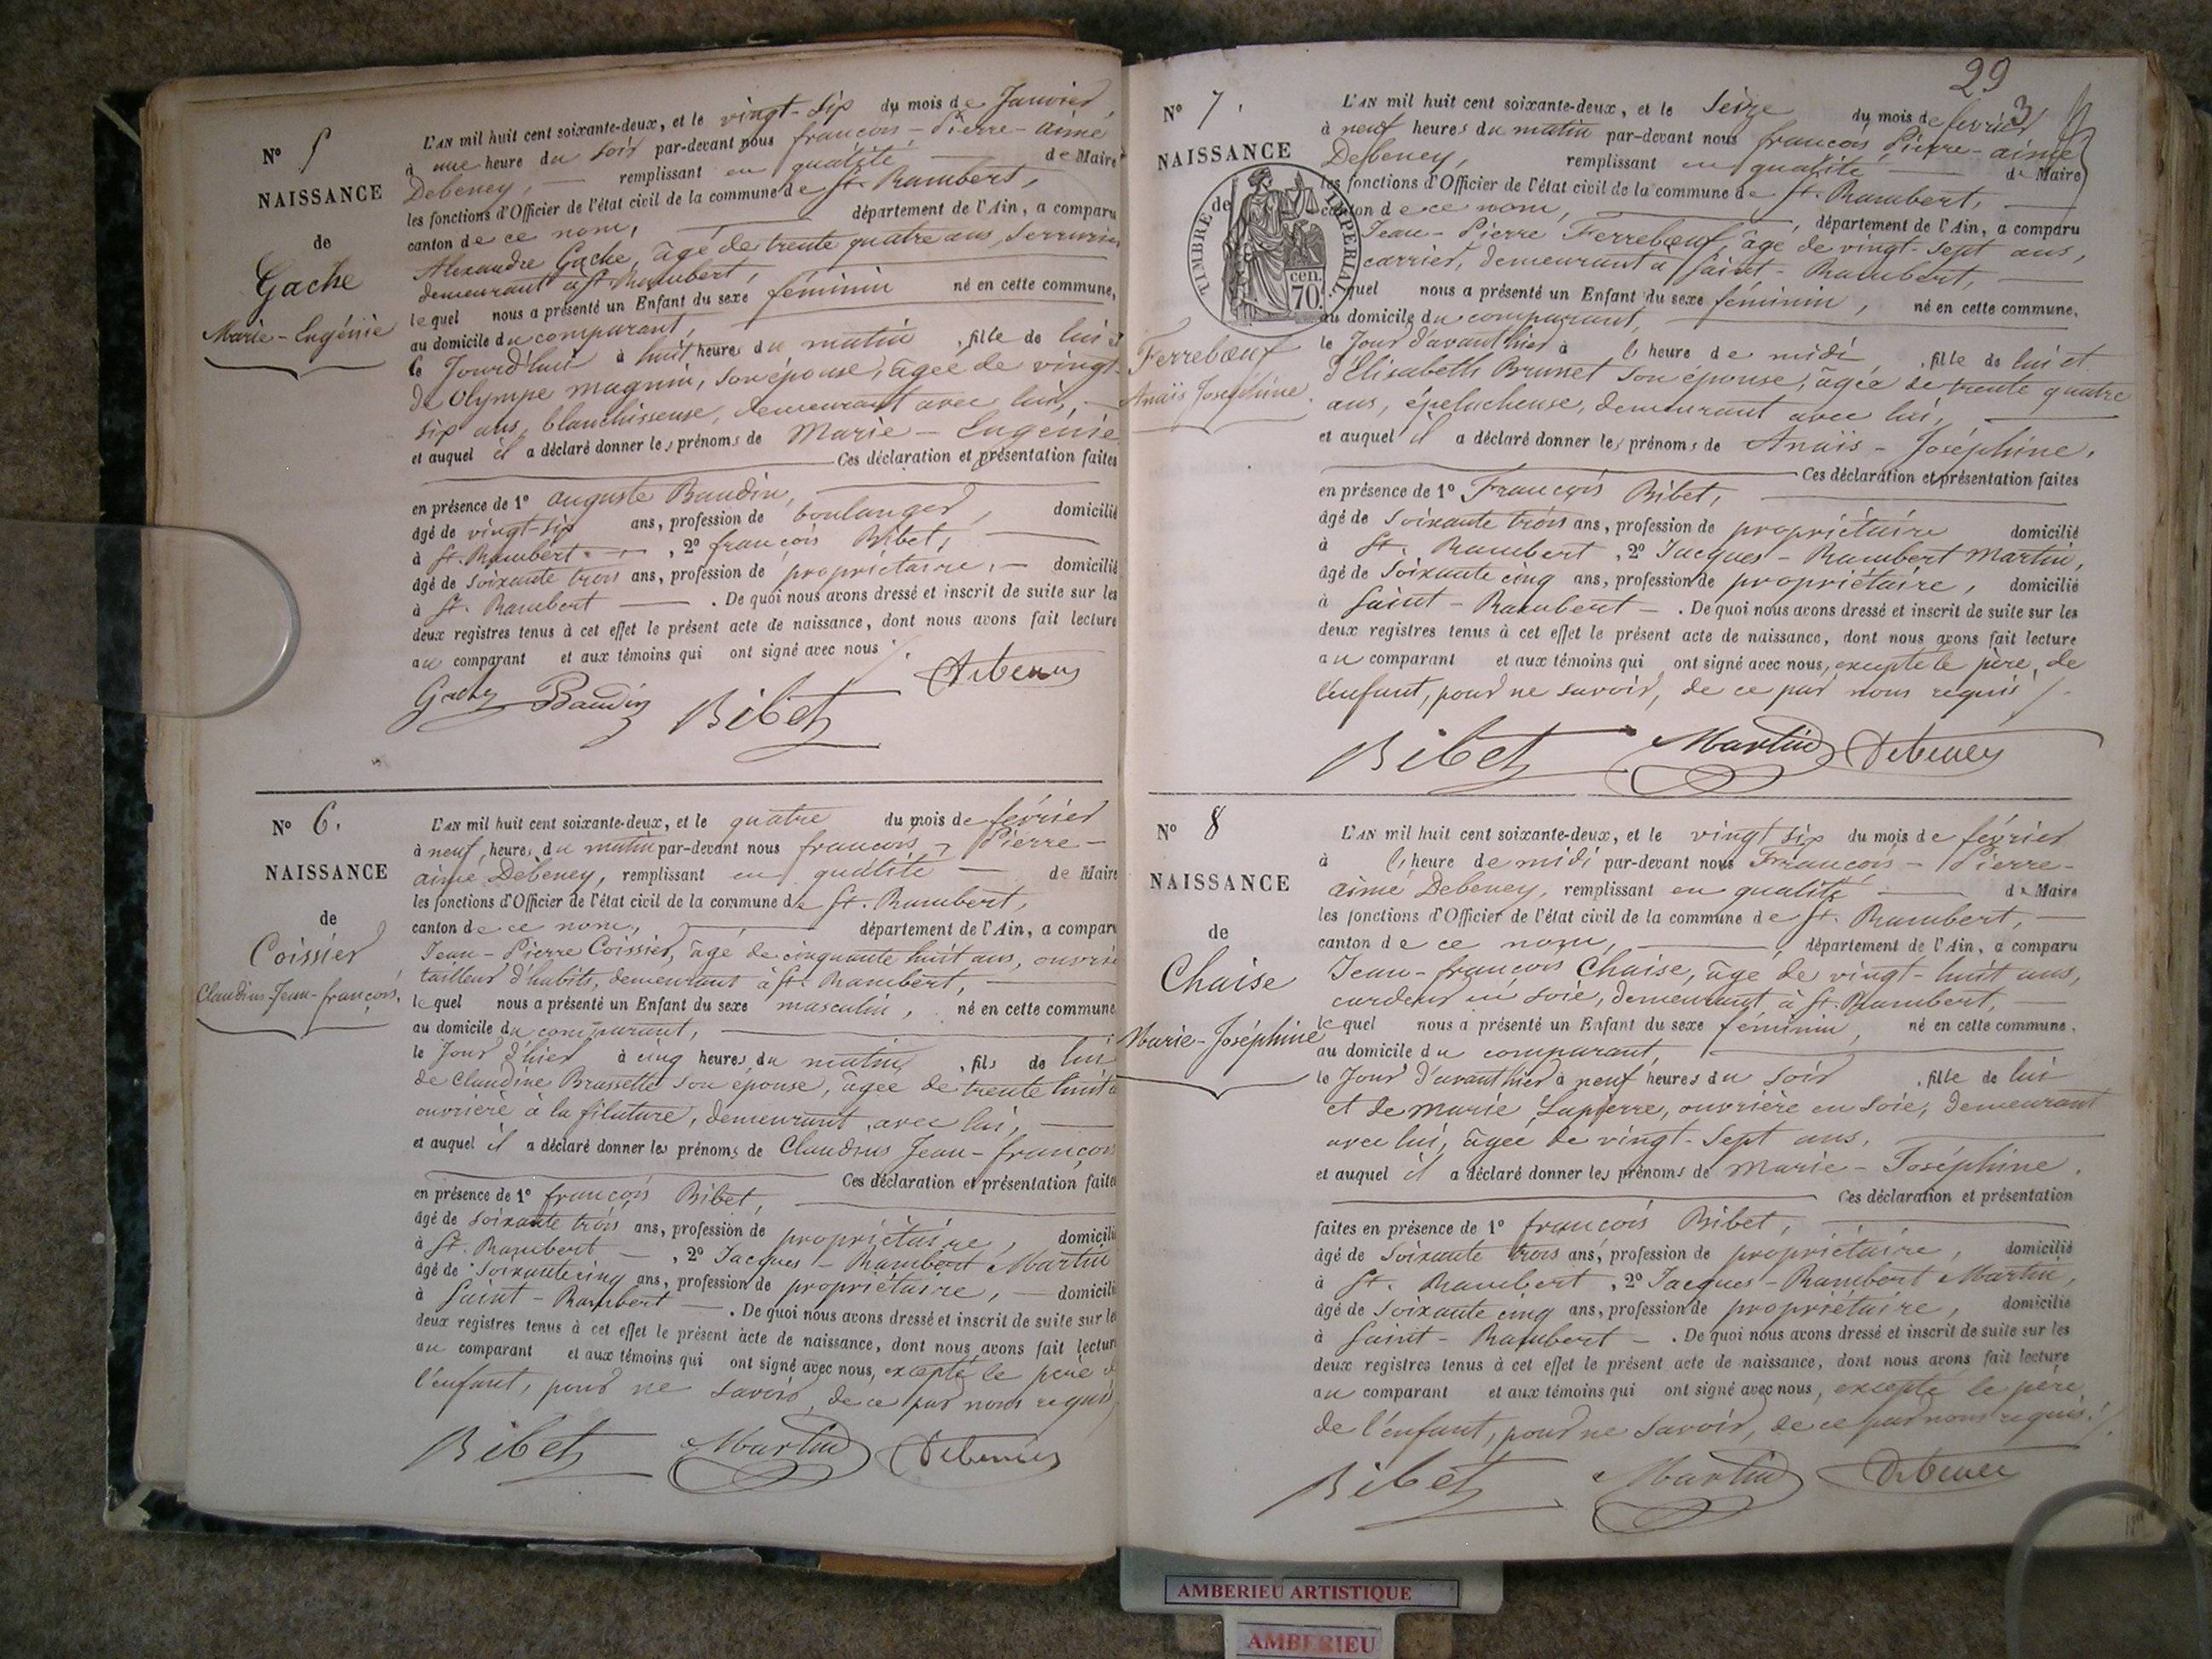 N° 5
NAISSANCE
de
Gache
Marie-Eugénie
L'AN mil huit cent soixante-deux, et le vingt-six du mois de Janvier,
à une heure du soir par-devant nous françois-Pierre-aimé
Debeney, remplissant en qualité de Maire
les fonctions d'Officier de l'état civil de la commune de St. Rambert,
canton de ce nom, département de l'Ain, a comparu
Alexandre Gache, âgé de trente quatre ans, Serrurier
demeurant à St. Rambert,
lequel nous a présenté un Enfant du sexe féminin né en cette commune,
au domicile du comparant,
le Jourd'hui à huit heures du matin, fille de lui et
de Olympe magnin, son épouse, âgée de vingt-
six ans, blanchisseuse, demeurant avec lui,
et auquel il a déclaré donner les prénoms de Marie-Eugénie
Ces déclaration et présentation faites
en présence de 1° auguste Baudin,
âgé de vingt-six ans, profession de boulanger, domicilié
à St. Rambert, 2° françois Bibet,
âgé de soixante trois ans, profession de propriétaire, domicilié
à St. Rambert. De quoi nous avons dressé et inscrit de suite sur les
deux registres tenus à cet effet le présent acte de naissance, dont nous avons fait lecture
au comparant et aux témoins qui ont signé avec nous
Gache Baudin Bibet Debeney
N° 6.
NAISSANCE
de
Coissier
Claudius-Jean-françois.
L'AN mil huit cent soixante-deux, et le quatre du mois de février
à neuf heures du matin par-devant nous françois-Pierre-
aimé Debeney, remplissant en qualité de Maire
les fonctions d'Officier de l'état civil de la commune de St. Rambert,
canton de ce nom, département de l'Ain, a comparu
Jean-Pierre Coissier, âgé de cinquante huit ans, ouvrier
tailleur d'habits, demeurant à St. Rambert,
lequel nous a présenté un Enfant du sexe masculin, né en cette commune
au domicile du comparant,
le Jour d'hier à cinq heures du matin, fils de lui
de Claudine Brassette son épouse, âgée de trente huit a
ouvrière à la filature, demeurant avec lui,
et auquel il a déclaré donner les prénoms de Claudius Jean-françois
Ces déclaration et présentation faites
en présence de 1° françois Bibet,
âgé de soixante trois ans, profession de propriétaire, domicilié
à St. Rambert, 2° Jacques-Rambert Martin
âgé de soixante cinq ans, profession de propriétaire, domicilié
à Saint-Rambert. De quoi nous avons dressé et inscrit de suite sur les
deux registres tenus à cet effet le présent acte de naissance, dont nous avons fait lecture
au comparant et aux témoins qui ont signé avec nous, excepté le père d
l'enfant, pour ne savoir, de ce par nous requis
Bibet Martin Debeney
29
3
N° 7.
NAISSANCE
de
TIMBRE IMPERIAL
cen.
70
Ferrebœuf
Anaïs Joséphine.
L'AN mil huit cent soixante-deux, et le Seize du mois de février
à neuf heures du matin par-devant nous françois Pierre-aimé
Debeney, remplissant en qualité de Maire
les fonctions d'Officier de l'état civil de la commune de St. Rambert,
canton de ce nom, département de l'Ain, a comparu
Jean-Pierre Ferrebœuf, âgé de vingt-sept ans,
carrier, demeurant à Saint-Rambert,
lequel nous a présenté un Enfant du sexe féminin, né en cette commune.
au domicile du comparant,
le Jour d'avant hier à l'heure de midi, fille de lui et
d'Elisabeth Brunet son épouse, âgée de trente quatre
ans, éplucheuse, demeurant avec lui,
et auquel il a déclaré donner les prénoms de Anaïs-Joséphine.
Ces déclaration et présentation faites
en présence de 1° François Bibet,
âgé de soixante trois ans, profession de propriétaire domicilié
à St. Rambert, 2° Jacques-Rambert Martin,
âgé de soixante cinq ans, profession de propriétaire, domicilié
à Saint-Rambert. De quoi nous avons dressé et inscrit de suite sur les
deux registres tenus à cet effet le présent acte de naissance, dont nous avons fait lecture
au comparant et aux témoins qui ont signé avec nous, excepté le père, de
l'enfant, pour ne savoir, de ce par nous requis
Bibet Martin Debeney
N° 8
NAISSANCE
de
Chaise
Marie-Joséphine
L'AN mil huit cent soixante-deux, et le vingt six du mois de février
à l'heure de midi par-devant nous François-Pierre-
aimé Debeney, remplissant en qualité de Maire
les fonctions d'Officier de l'état civil de la commune de St. Rambert,
canton de ce nom, département de l'Ain, a comparu
Jean-françois Chaise, âgé de vingt-huit ans,
cardeur en soie, demeurant à St. Rambert,
lequel nous a présenté un Enfant du sexe féminin, né en cette commune.
au domicile du comparant,
le Jour d'avant hier à neuf heures du soir, fille de lui
et de marie Lapierre, ouvrière en soie, demeurant
avec lui, âgée de vingt-sept ans.
et auquel il a déclaré donner les prénoms de marie-Joséphine.
Ces déclaration et présentation
faites en présence de 1° françois Bibet,
âgé de soixante trois ans, profession de propriétaire, domicilié
à St. Rambert, 2° Jacques-Rambert Martin,
âgé de soixante cinq ans, profession de propriétaire, domicilié
à Saint-Rambert. De quoi nous avons dressé et inscrit de suite sur les
deux registres tenus à cet effet le présent acte de naissance, dont nous avons fait lecture
au comparant et aux témoins qui ont signé avec nous, excepté le père
de l'enfant, pour ne savoir, de ce par nous requis.
Bibet Martin Debeney
AMBERIEU ARTISTIQUE
AMBERIEU